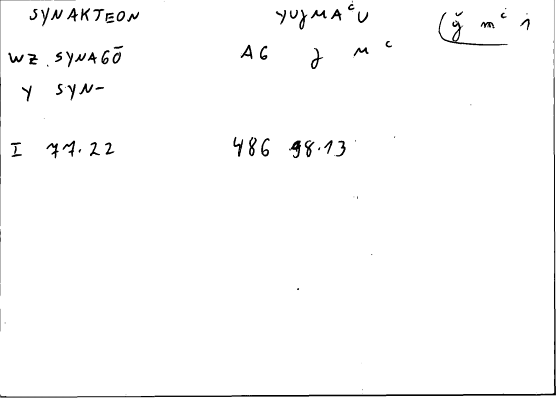 SYNAKTEON YUJMAᶜU (ğ mᶜ i
WZ. SYNAGŌ AG J Mᶜ
Y SYN-
I 77.22 486 98.13